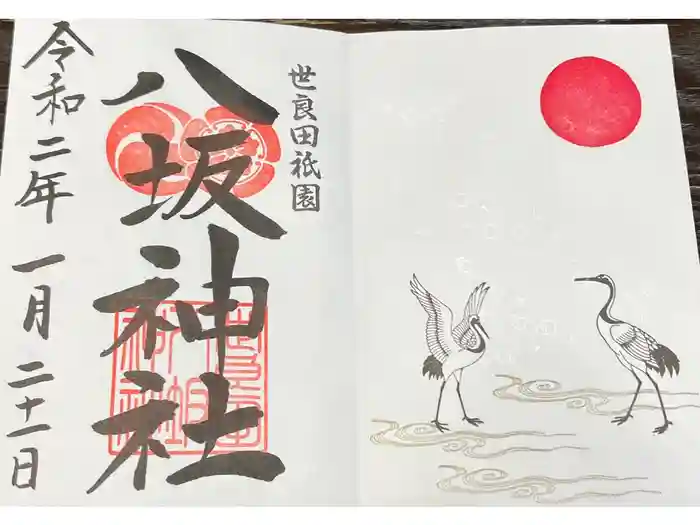 世良田祇園
八坂神社
令和二年一月二十一日